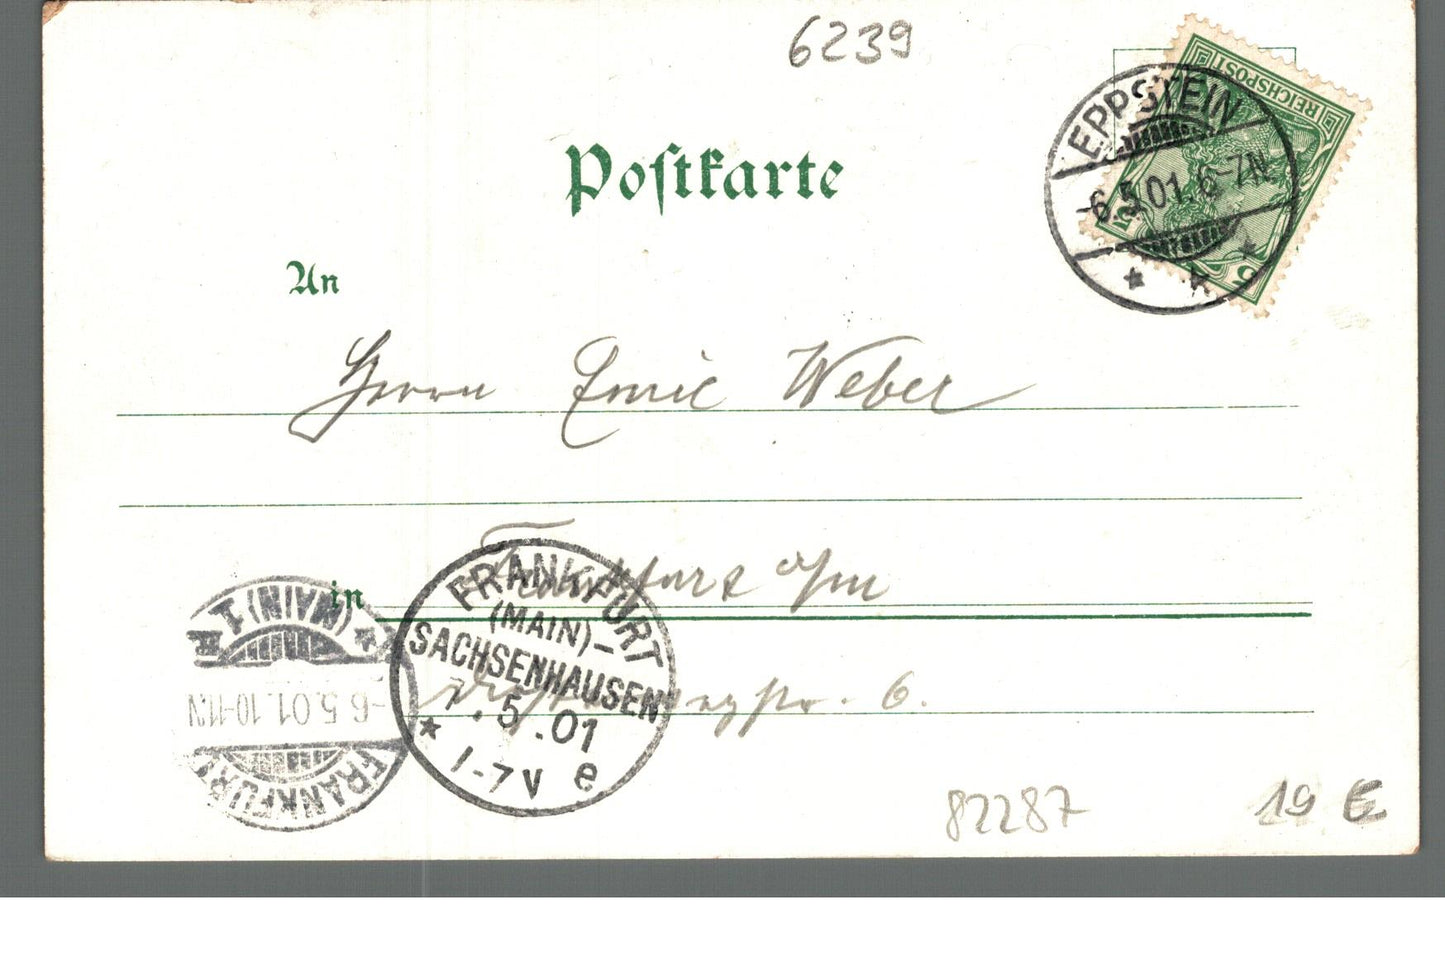 6239
REICHSPOST
5
5
EPPSTEIN
-6.5.01. 6-7N.
* k *
Postkarte
An
Herrn Emil Weber
in Frankfurt a/m
6.
FRANKFURT
(MAIN)-
SACHSENHAUSEN
7.5.01
* 1-7V e
FRANKFURT
-6.5.01.10-11N
* (MAIN) 1
82287
19 €